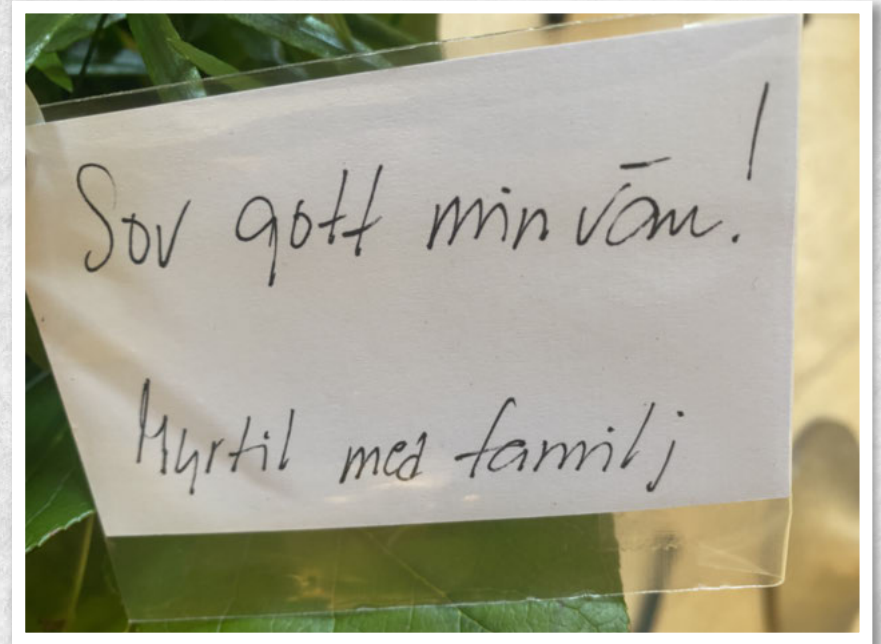 Sov gott min vän!
Myrtil med familj